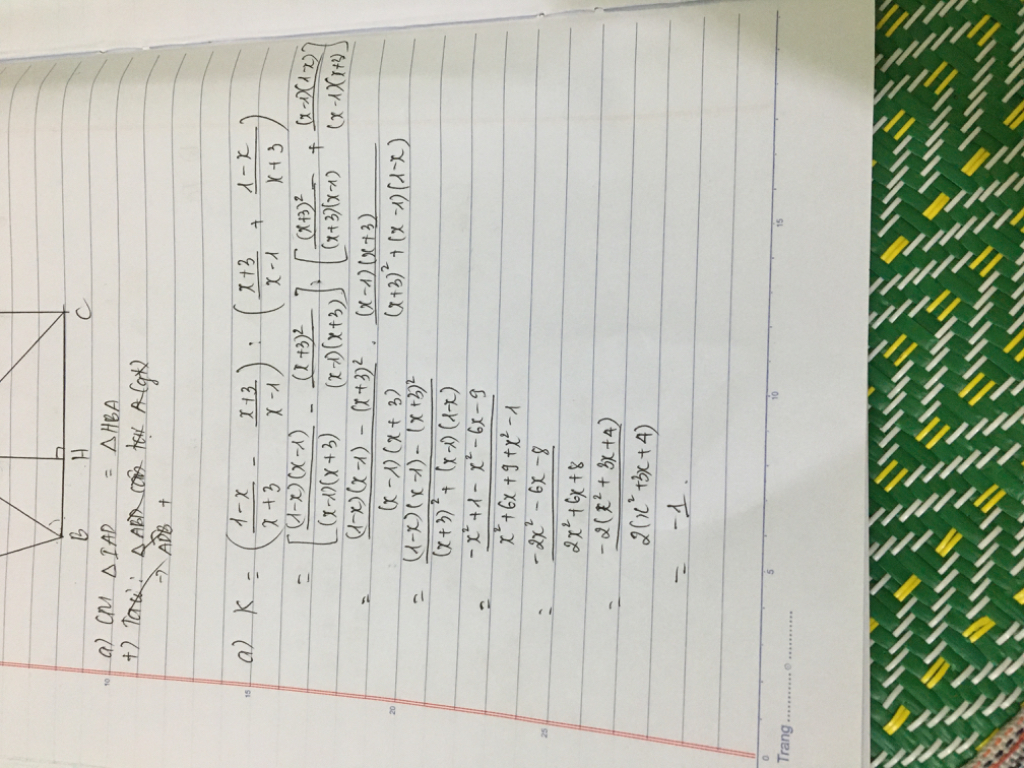 B H C
a) CM △ IAD = △ HBA
+) △ ABD A (gt)
→ ADB +
a) K = ((1-x)/(x+3) - (x+3)/(x-1)) : ((x+3)/(x-1) + (1-x)/(x+3))
= [(1-x)(x-1)/(x-1)(x+3) - (x+3)²/(x-1)(x+3)] : [(x+3)²/(x+3)(x-1) + (x-1)(1-x)/(x-1)(x+3)]
= (1-x)(x-1) - (x+3)²/(x-1)(x+3) . (x-1)(x+3)/(x+3)² + (x-1)(1-x)
= (1-x)(x-1) - (x+3)²/(x+3)² + (x-1)(1-x)
= -x² + 1 - x² - 6x - 9/x² + 6x + 9 + x² - 1
= -2x² - 6x - 8/2x² + 6x + 8
= -2(x² + 3x + 4)/2(x² + 3x + 4)
= -1.
10
15
20
25
0 5 10 15
Trang